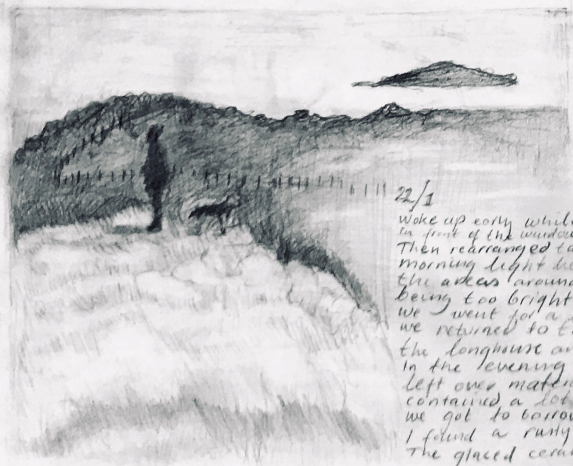 22/1
Woke up early whils
in front of the window
Then rearranged
morning light
the areas around
being too bright
we went for a
we returned to
the longhouse
In the evening
left over
contained a lot
we got to borrow
I found a rusty
The glazed